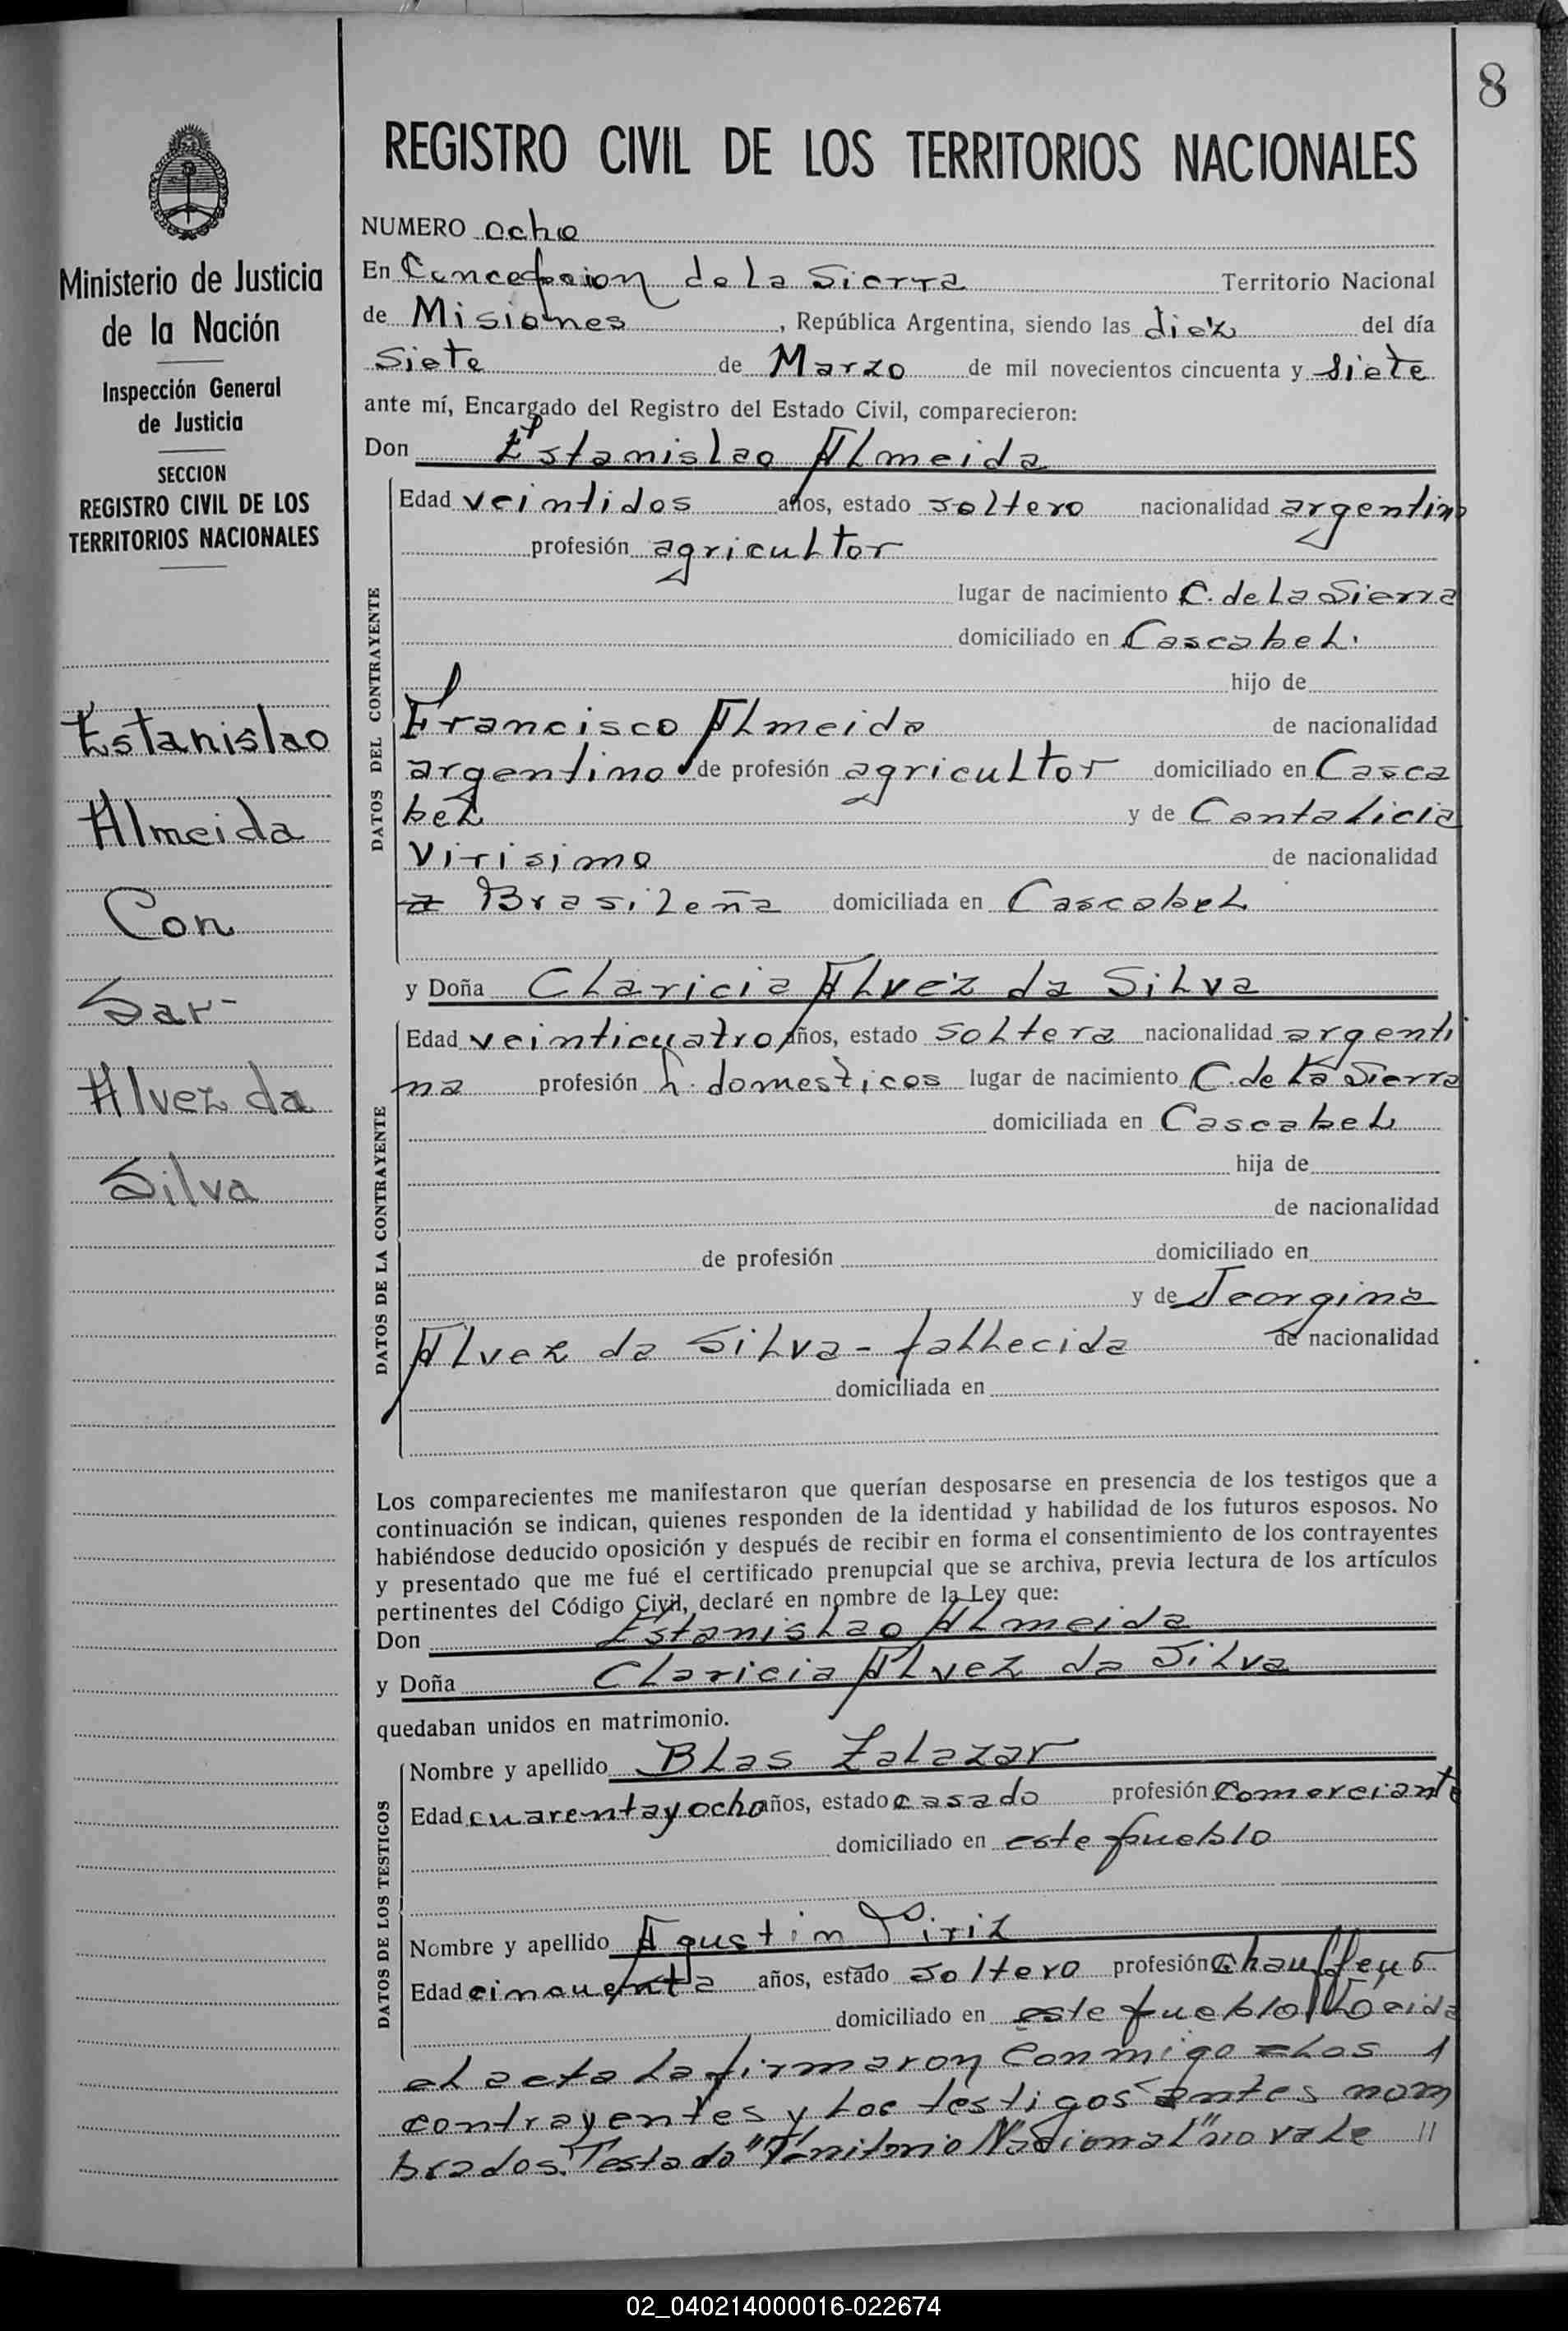 8
REGISTRO CIVIL DE LOS TERRITORIOS NACIONALES
Ministerio de Justicia
de la Nación
Inspección General
de Justicia
SECCION
REGISTRO CIVIL DE LOS
TERRITORIOS NACIONALES
Estanislao
Almeida
Con
Alvez da
Silva
NUMERO ocho
En Concepcion de La Sierra Territorio Nacional
de Misiones, República Argentina, siendo las diez del día
Siete de Marzo de mil novecientos cincuenta y siete
ante mí, Encargado del Registro del Estado Civil, comparecieron:
Don Estanislao Almeida
DATOS DEL CONTRAYENTE
Edad veintidos años, estado soltero nacionalidad argentino
profesión agricultor
lugar de nacimiento C. de La Sierra
domiciliado en Cascabel.
hijo de
Francisco Almeida de nacionalidad
argentino de profesión agricultor domiciliado en Casca
bel y de Cantalicia
Virisimo de nacionalidad
a Brasileña domiciliada en Cascabel
y Doña Claricia Alvez da Silva
DATOS DE LA CONTRAYENTE
Edad veinticuatro años, estado soltera nacionalidad argenti
na profesión h. domesticos lugar de nacimiento C. de La Sierra
domiciliada en Cascabel
hija de
de nacionalidad
de profesión domiciliado en
y de Jeorgina
Alvez da Silva - fallecida de nacionalidad
domiciliada en
Los comparecientes me manifestaron que querían desposarse en presencia de los testigos que a
continuación se indican, quienes responden de la identidad y habilidad de los futuros esposos. No
habiéndose deducido oposición y después de recibir en forma el consentimiento de los contrayentes
y presentado que me fué el certificado prenupcial que se archiva, previa lectura de los artículos
pertinentes del Código Civil, declaré en nombre de la Ley que:
Don Estanislao Almeida
y Doña Claricia Alvez da Silva
quedaban unidos en matrimonio.
DATOS DE LOS TESTIGOS
Nombre y apellido Blas Zalazar
Edad cuarentayocho años, estado casado profesión Comerciante
domiciliado en este pueblo
Nombre y apellido Agustin Piriz
Edad cincuenta años, estado soltero profesión chauffeur
domiciliado en este pueblo Lleida
el acta la firmaron conmigo los
contrayentes y los testigos antes nom
brados. Testado "Territorio Nacional" no vale
02_040214000016-022674